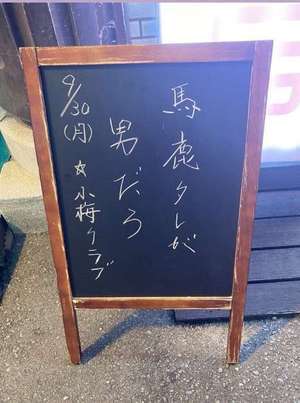 馬鹿タレが
男だろ
9/30(月)☆小梅クラブ